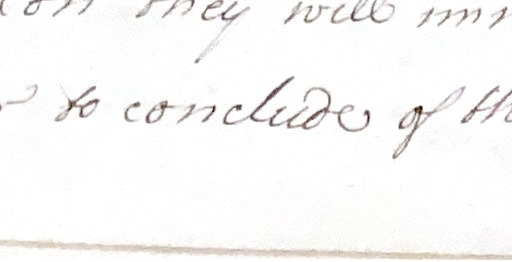 they will
to conclude of th